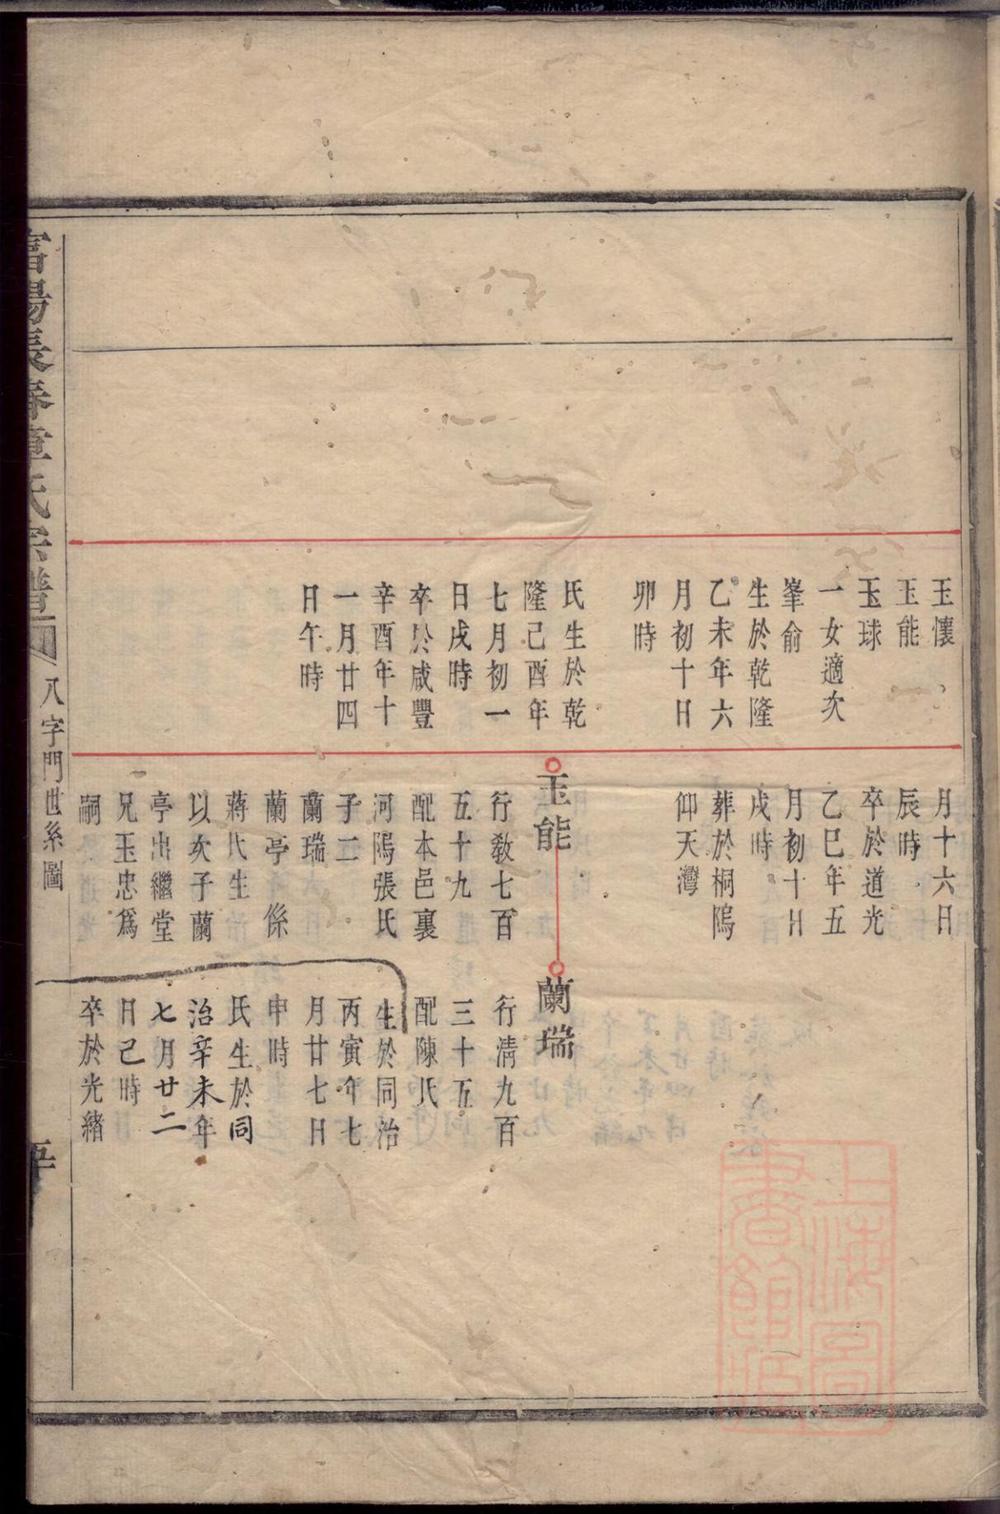 玉懷
玉能
玉球
一女適次
峯俞
生於乾隆
乙未年六
月初十日
卯時
氏生於乾
隆己酉年
七月初一
日戌時
卒於咸豐
辛酉年十
一月廿四
日午時
月十六日
辰時
卒於道光
乙巳年五
月初十日
戌時
葬於桐塢
仰天灣
玉能
行敎七百
五十九
配本邑裏
河隝張氏
子二
蘭瑞
蘭亭 係
蔣氏生
以次子蘭
亭出繼堂
兄玉忠爲
嗣
蘭瑞
行淸九百
三十五
配陳氏
生於同治
丙寅年七
月廿七日
申時
氏生於同
治辛未年
七月廿二
日己時
卒於光緒
富陽長春章氏宗譜
八字門世系圖
上海圖書館藏